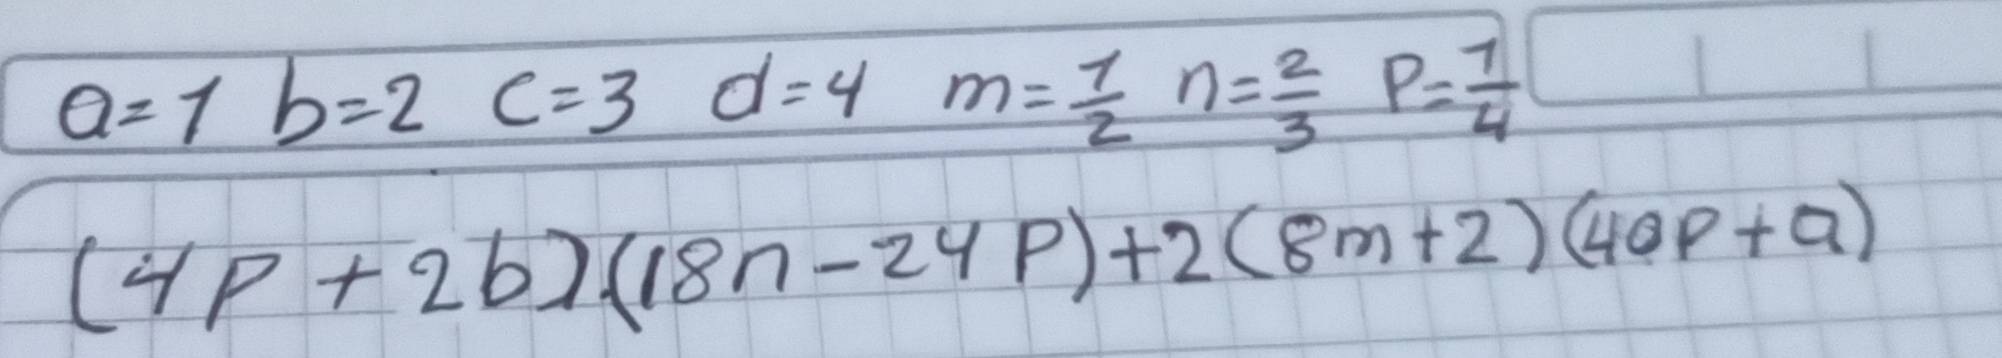 a=1 b=2 c=3 d=4 m=1/2 n=2/3 P=1/4
(4p+2b)(18n-24P)+2(8m+2)(40p+a)